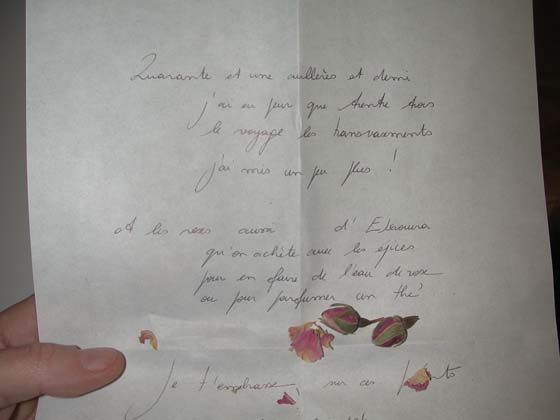 Quarante et une cuillères et demi
j'ai eu peur que trente trois
le voyage les
j'ai mis un peu plus !
A les roses aussi d'
qu'on achète avec les épices
pour en faire de l'eau de rose
ou pour parfumer un thé
Je t'embrasse, sur ces